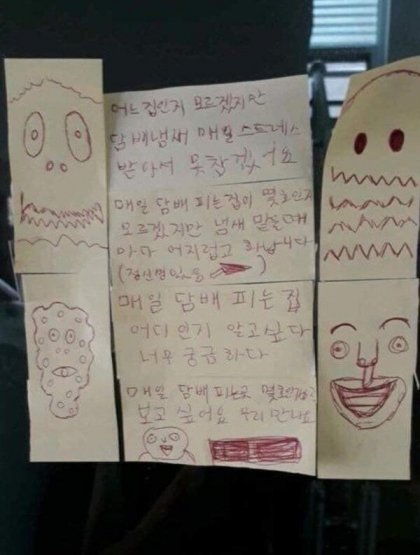 어느집인지 모르겠지만
담배냄새 매일 스트레스
받아서 못참겠어요
매일 담배 피는집이 몇호인지
모르겠지만 냄새 맡을때
마다 어지럽고 화납니다
(정신병있음)
매일 담배 피는 집
어디인지 알고싶다
너무 궁금하다
매일 담배피는곳
보고 싶어요 우리 만나요